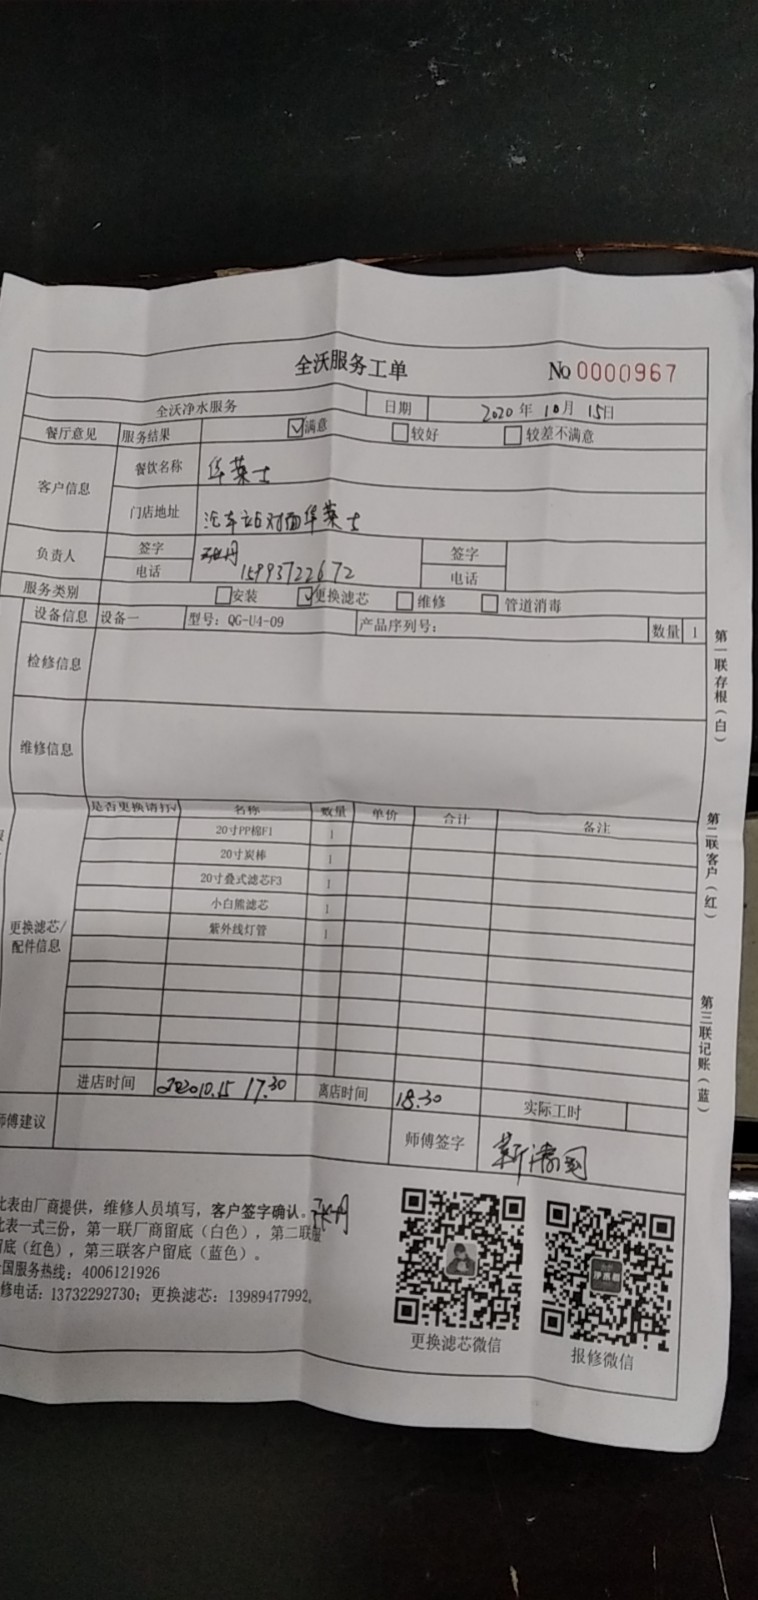 全沃服务工单 No 0000967
全沃净水服务 日期 2020年10月15日
餐厅意见 服务结果 ☑满意 □较好 □较差不满意
客户信息 餐饮名称 华莱士
门店地址 汽车站对面华莱士
负责人 签字 签字
电话 15993722672 电话
服务类别 □安装 ☑更换滤芯 □维修 □管道消毒
设备信息 设备一 型号：QG-U4-09 产品序列号： 数量 1
检修信息
维修信息
是否更换请打√ 名称 数量 单价 合计 备注
更换滤芯/
配件信息
20寸PP棉F1 1
20寸炭棒 1
20寸叠式滤芯F3 1
小白熊滤芯 1
紫外线灯管 1
进店时间 2020.10.15 17.30 离店时间 18.30 实际工时
师傅建议 师傅签字
此表由厂商提供，维修人员填写，客户签字确认。
此表一式三份，第一联厂商留底（白色），第二联
留底（红色），第三联客户留底（蓝色）。
全国服务热线：4006121926
修电话：13732292730；更换滤芯：13989477992。
更换滤芯微信 报修微信
第一联存根（白）
第二联客户（红）
第三联记账（蓝）